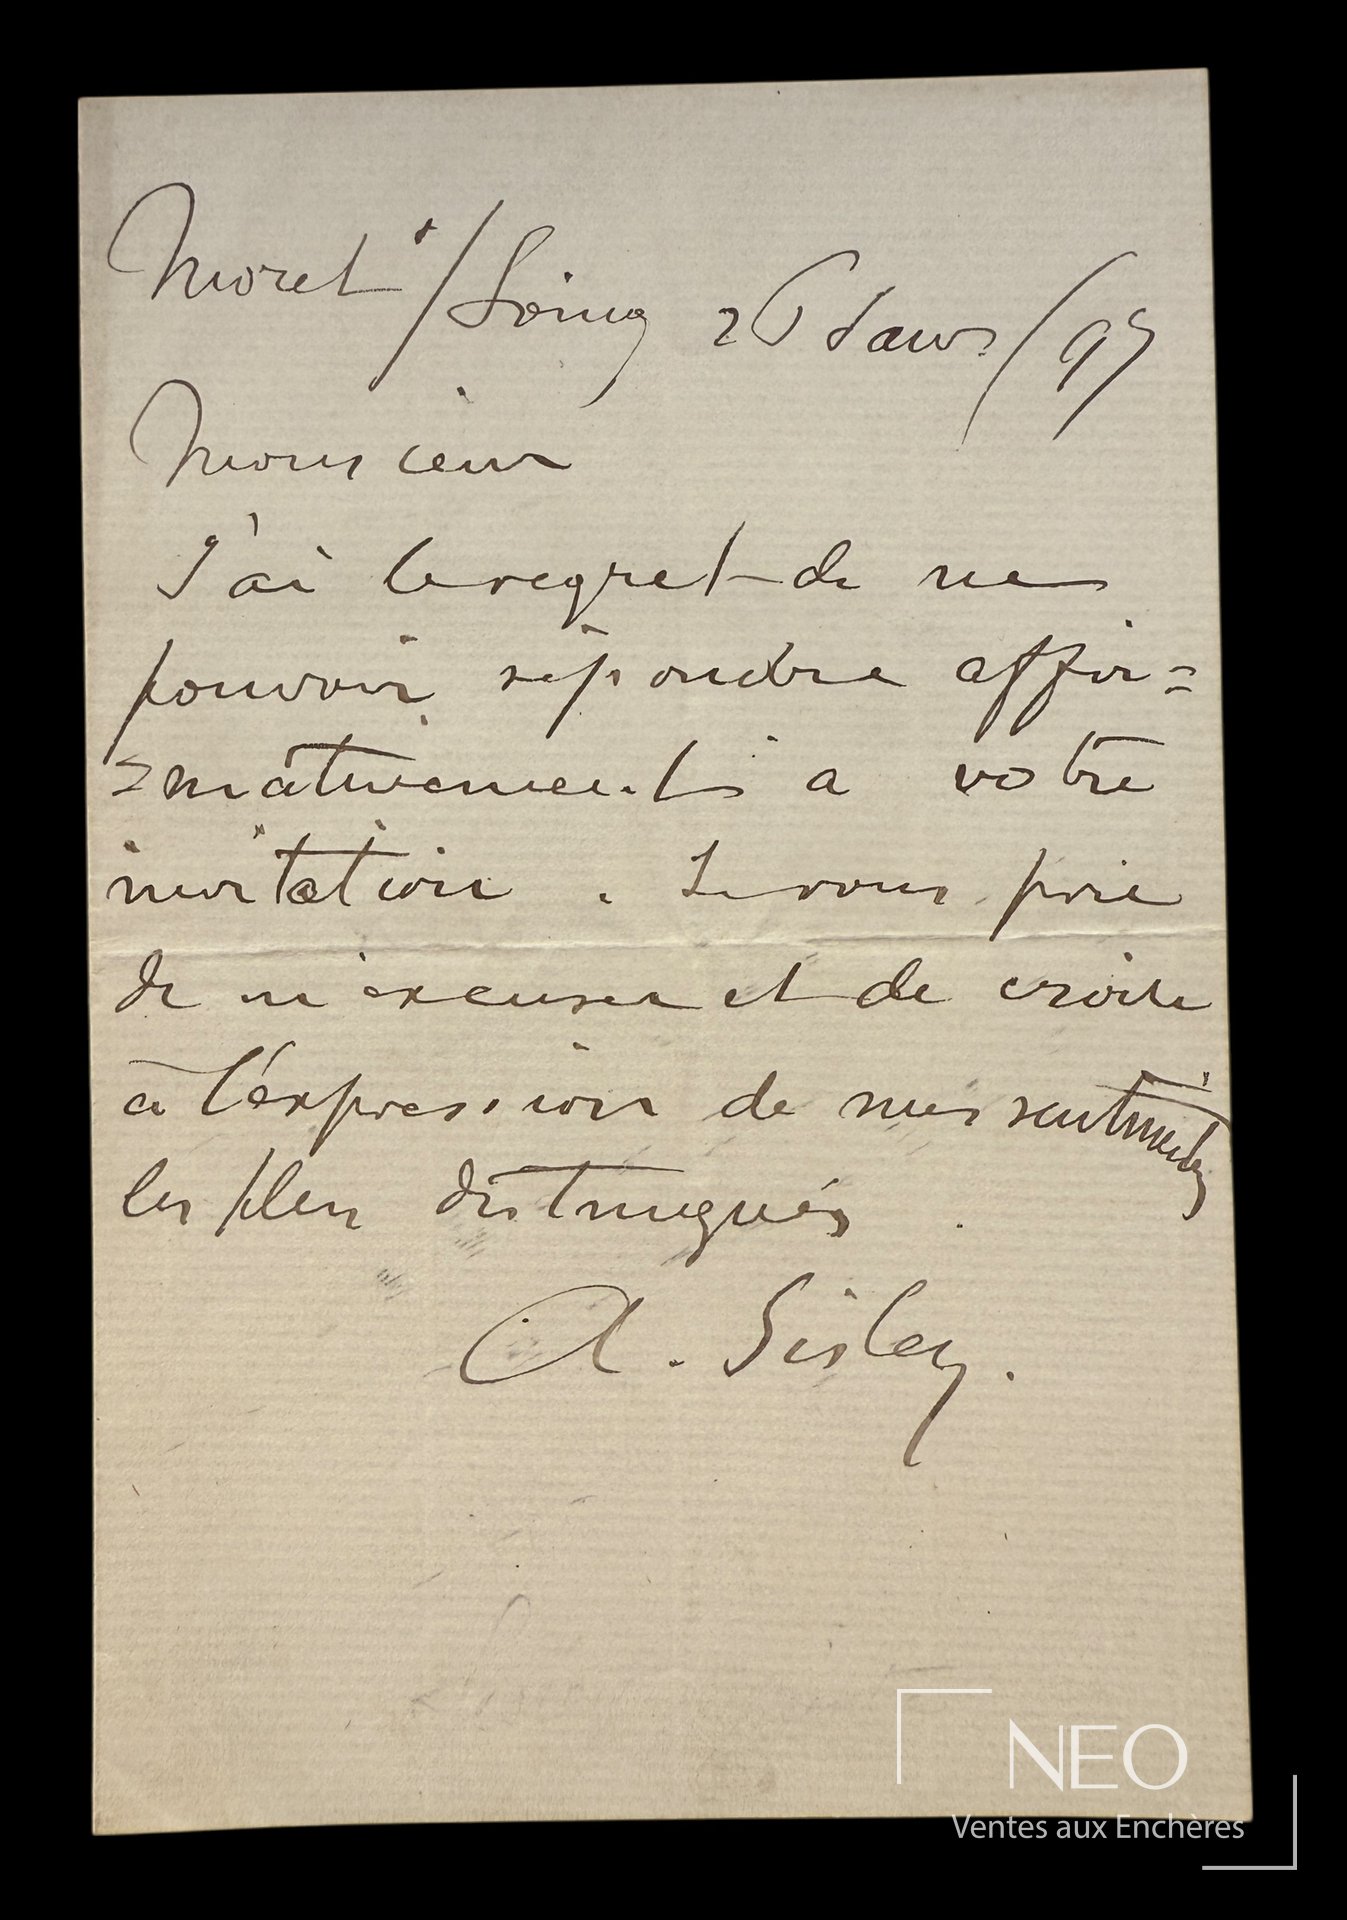 Moret s/Loing 26 Janv/95
Monsieur
J'ai le regret de ne
pouvoir répondre affir=
=mativement à votre
invitation. Je vous prie
de m'excuser et de croire
à l'expression de mes sentiments
les plus distingués.
A. Sisley.
NEO
Ventes aux Enchères